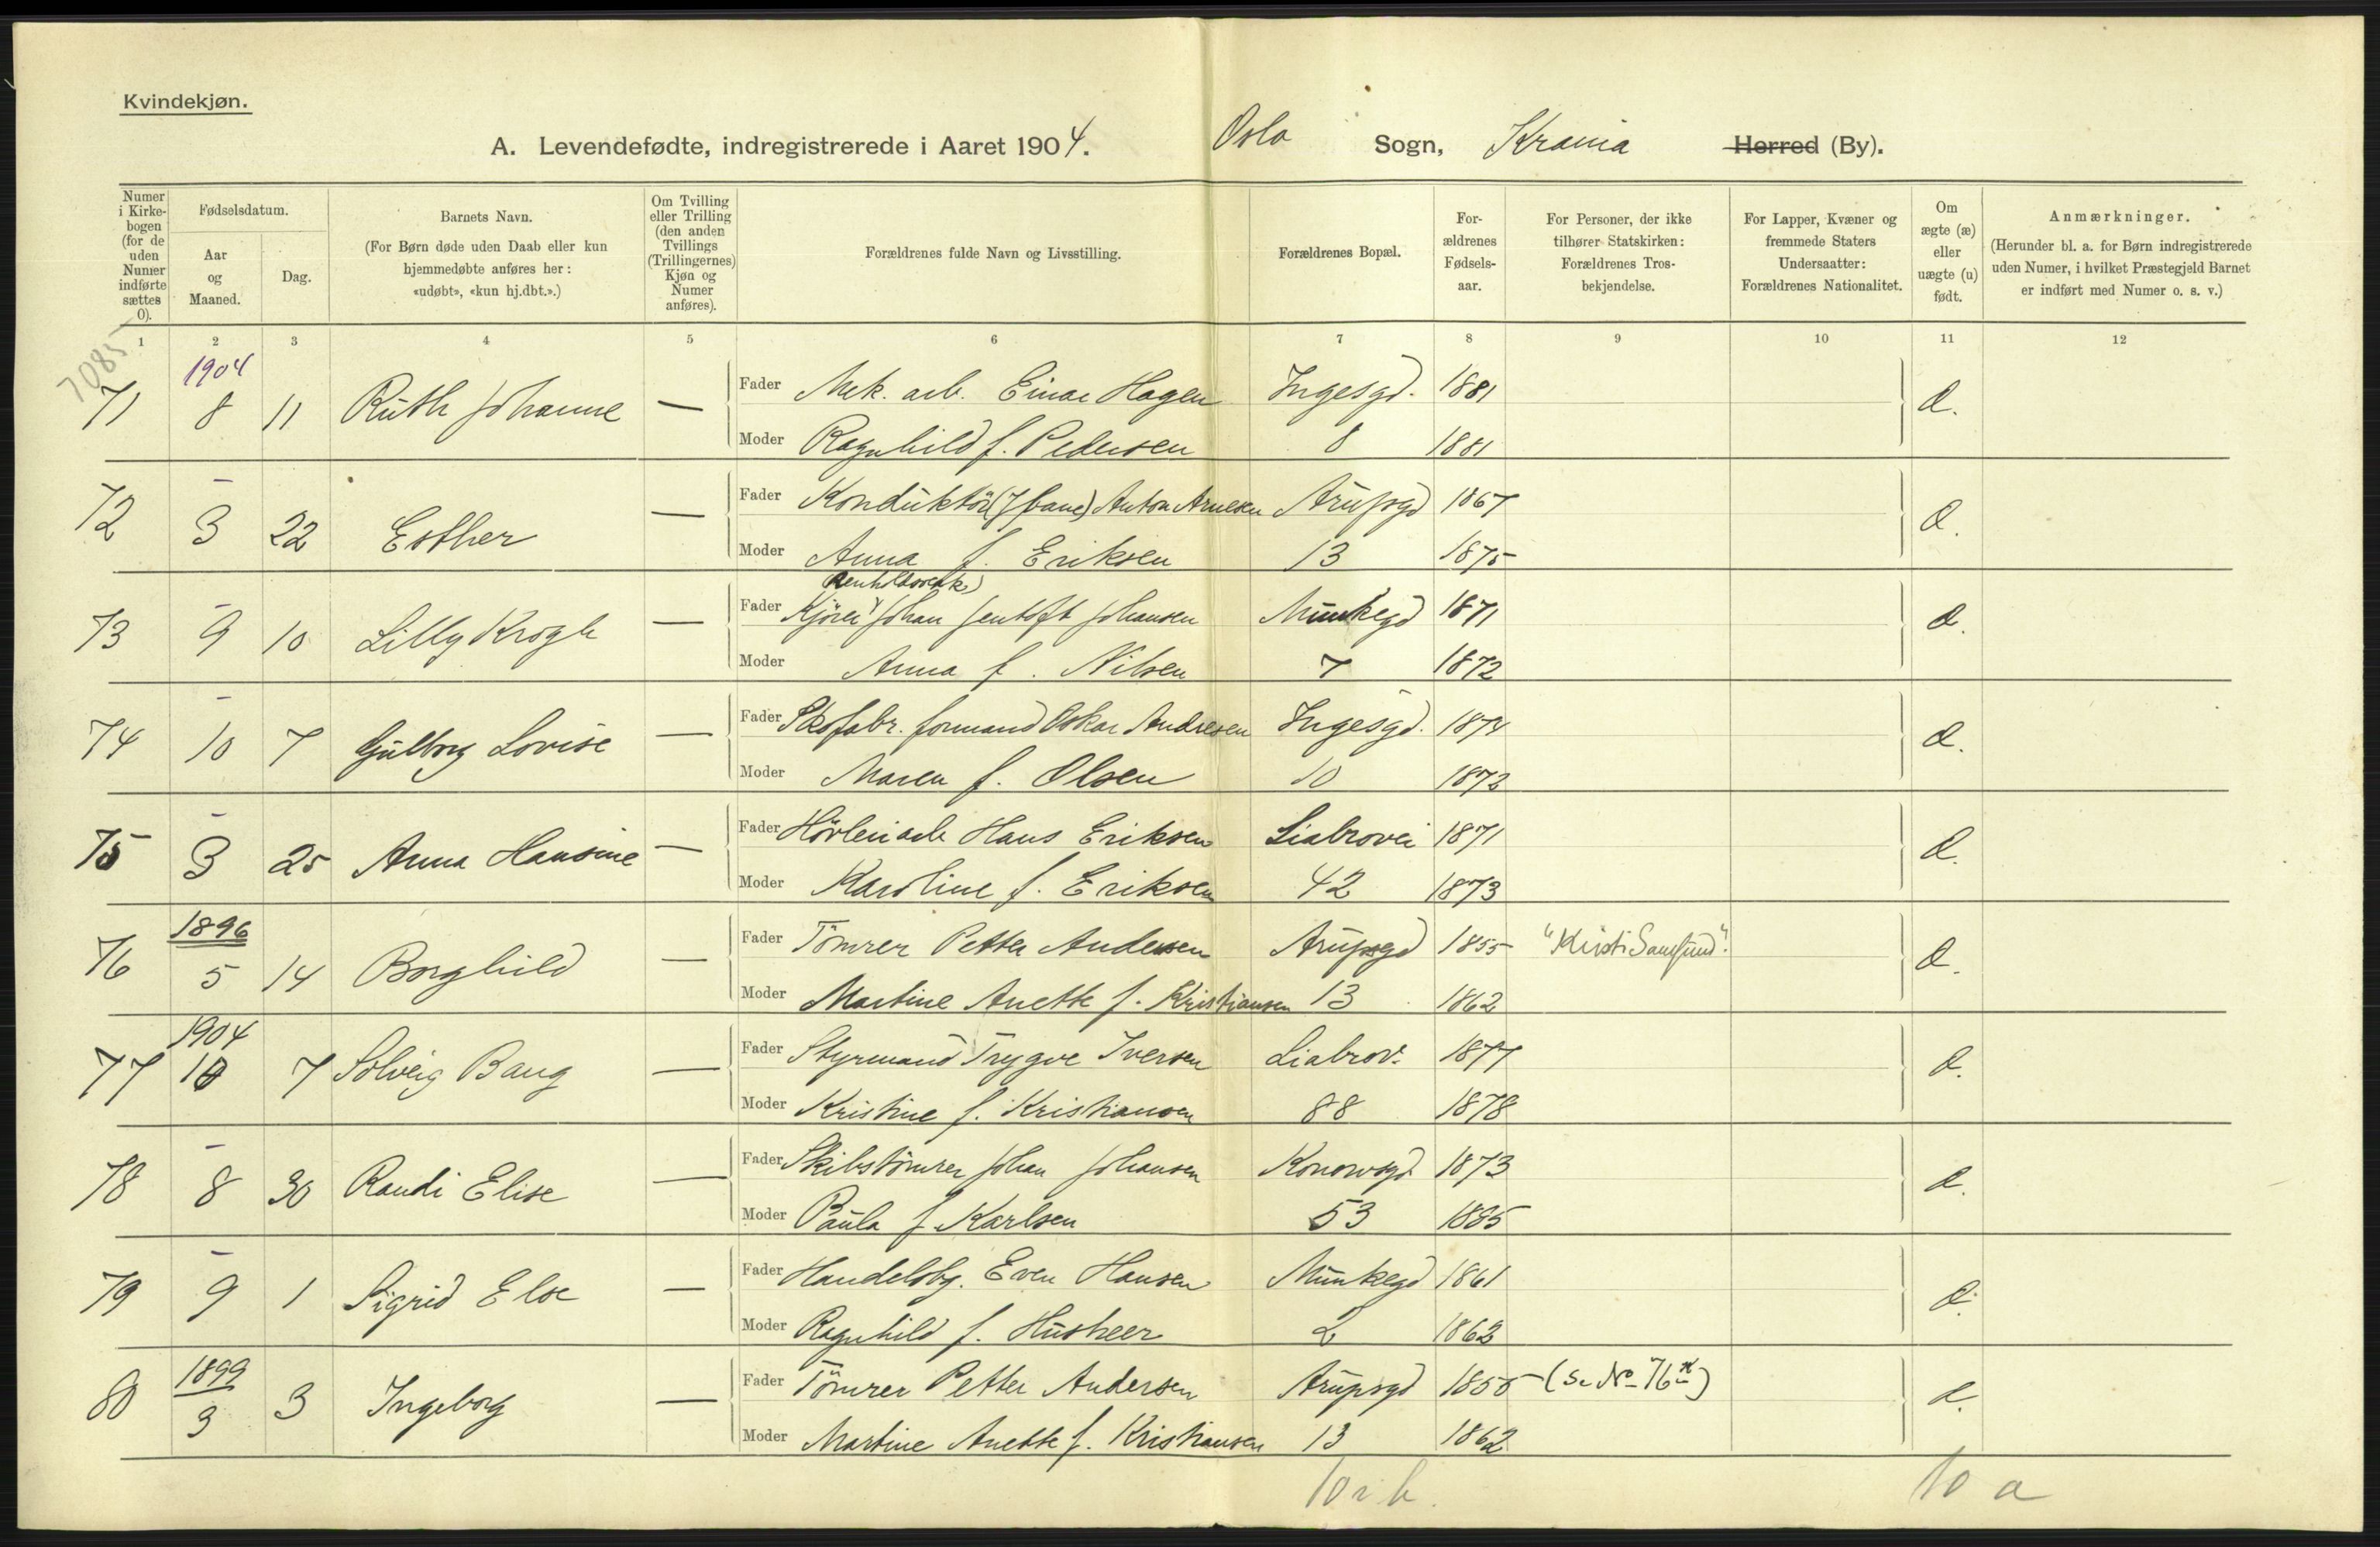 Kvindekjøn.
A. Levendefødte, indregistrerede i Aaret 1904. Oslo Sogn, Krania Herred (By).
Numer i Kirkebogen (for de uden Numer indførte sættes 0).
Fødselsdatum.
Aar og Maaned.
Dag.
Barnets Navn.
(For Børn døde uden Daab eller kun hjemmedøbte anføres her: «udøbt», «kun hj.dbt.».)
Om Tvilling eller Trilling (den anden Tvillings (Trillingernes) Kjøn og Numer anføres).
Forældrenes fulde Navn og Livsstilling.
Forældrenes Bopæl.
Forældrenes Fødselsaar.
For Personer, der ikke tilhører Statskirken: Forældrenes Trosbekjendelse.
For Lapper, Kvæner og fremmede Staters Undersaatter: Forældrenes Nationalitet.
Om ægte (æ) eller uægte (u) født.
Anmærkninger.
(Herunder bl. a. for Børn indregistrerede uden Numer, i hvilket Præstegjeld Barnet er indført med Numer o. s. v.)
1 2 3 4 5 6 7 8 9 10 11 12
7085
1904
71 8 11 Ruth Johanne — Fader Mek. arb. Einar Hagen Ingesgd. 1881 æ.
Moder Ragnhild f. Pedersen 8 1881
72 – 3 22 Esther — Fader Konduktör (J bane) Anton Arnesen Arupsgd 1867 æ.
Moder Anna f. Eriksen 13 1875
Renholdsverk.)
73 – 9 10 Lilly Krogh — Fader Kjörer Johan Jentoft Johansen Munkegd 1871 æ.
Moder Anna f. Nilsen 7 1872
74 – 10 7 Gulborg Lovise — Fader Skofabr. formand Oskar Andresen Ingesgd. 1874 æ.
Moder Maren f. Olsen 10 1873
75 – 3 25 Anna Hansine — Fader Hövleriarb Hans Eriksen Liabrovei 1871 æ.
Moder Karoline f. Eriksen 42 1873
1896
76 5 14 Borghild — Fader Tömrer Petter Andersen Arupsgd 1855 "Kristi Samfund". æ.
Moder Martine Anette f. Kristiansen 13 1862
1904
77 10 7 Solveig Bang — Fader Styrmand Trygve Iversen Liabrov. 1877 æ.
Moder Kristine f. Kristiansen 88 1878
78 – 8 30 Randi Elise — Fader Skibstömrer Johan Johansen Konowsgd 1873 æ.
Moder Paula f. Karlsen 53 1885
79 – 9 1 Sigrid Else — Fader Handelsbg. Even Hansen Munkegd 1861 æ.
Moder Ragnhild f. Husheer 2 1862
1899
80 3 3 Ingeborg — Fader Tömrer Petter Andersen Arupsgd 1855 (Se No 76) æ.
Moder Martine Anette f. Kristiansen 13 1862
10 i b. 10 a